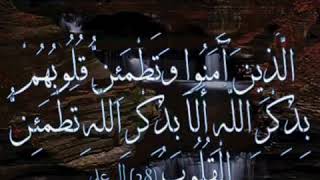 الَّذِينَ آمَنُوا وَتَطْمَئِنُّ قُلُوبُهُمْ
بِذِكْرِ اللَّهِ أَلَا بِذِكْرِ اللَّهِ تَطْمَئِنُّ
الْقُلُوبُ (28)